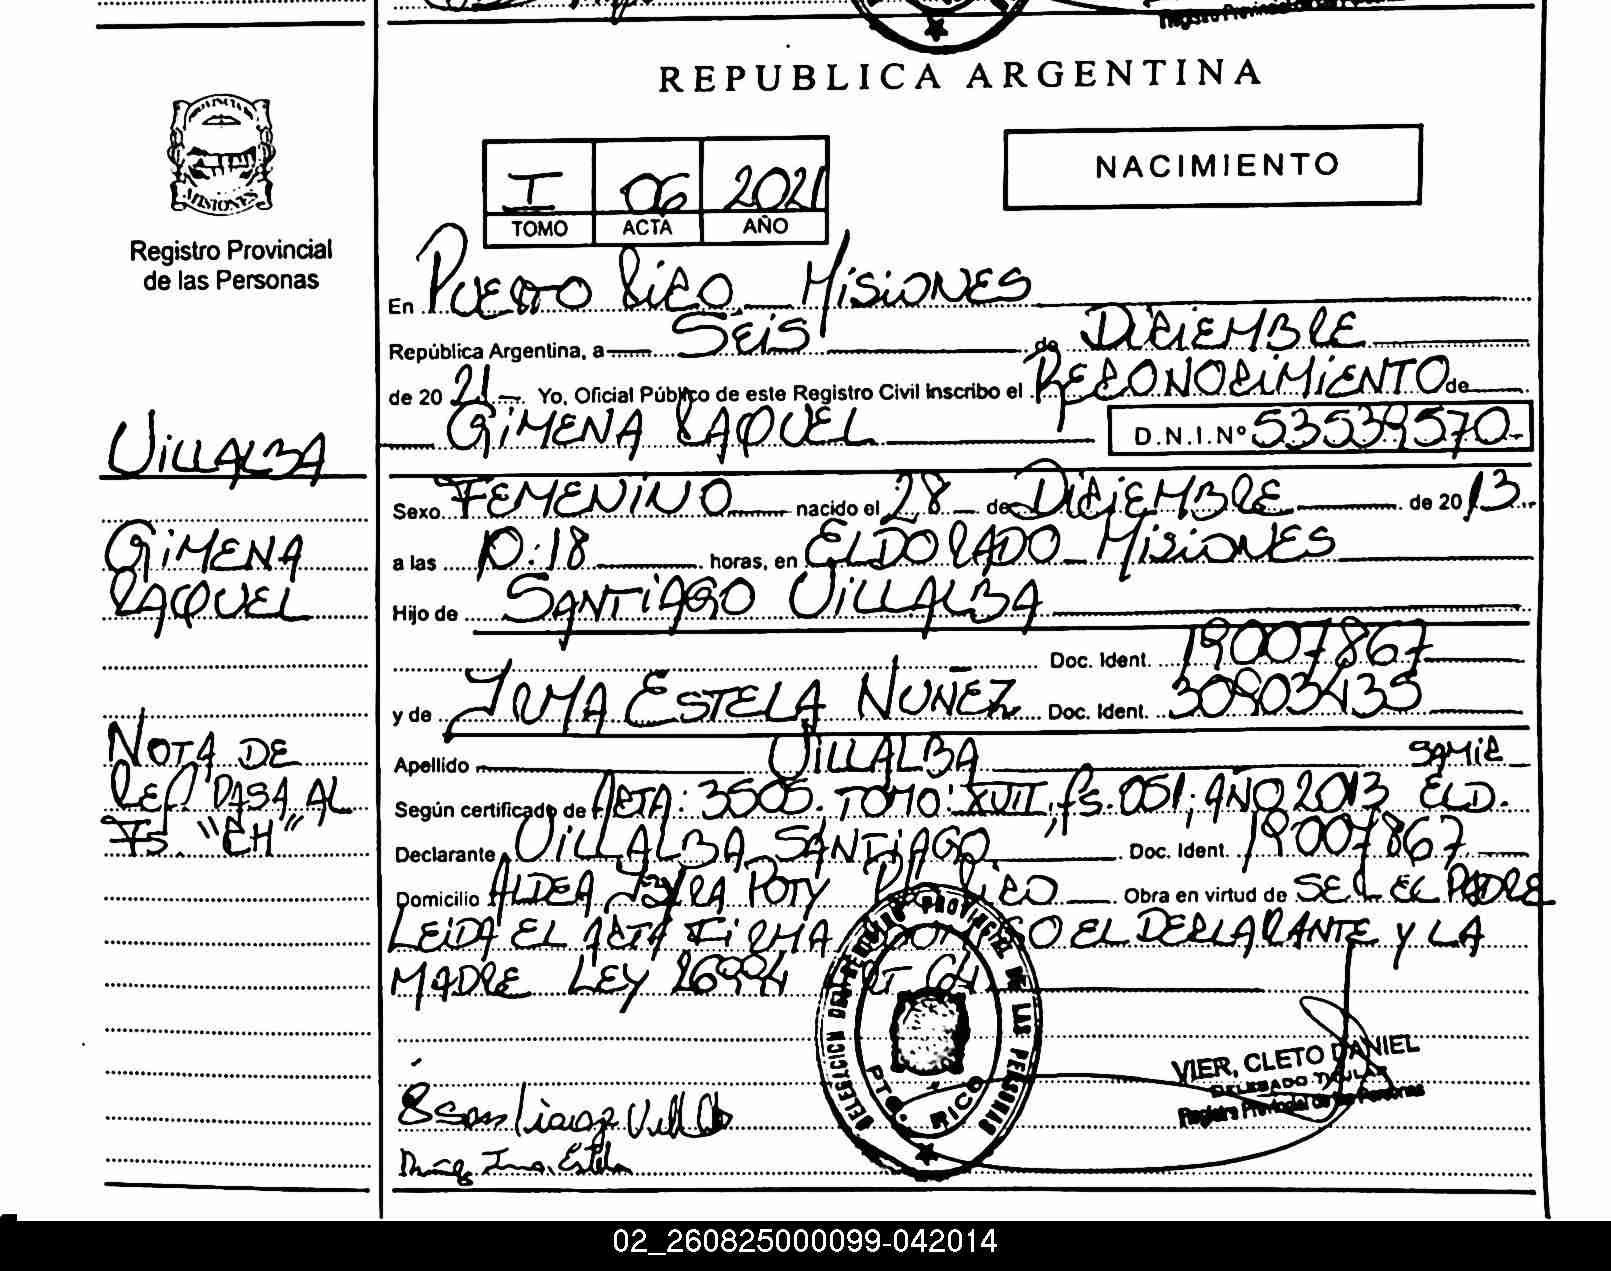 REPUBLICA ARGENTINA
PROVINCIA DE
MISIONES
Registro Provincial
de las Personas
I 06 2021
TOMO ACTA AÑO
NACIMIENTO
En PUERTO RICO MISIONES
República Argentina, a SEIS de DICIEMBRE
de 20 21 Yo, Oficial Público de este Registro Civil Inscribo el RECONOCIMIENTO de
GIMENA RAQUEL D.N.I.Nº 53539570
VILLALBA
GIMENA
RAQUEL
NOTA DE
REF. PASA AL
FS. "EH"
Sexo FEMENINO nacido el 28 de DICIEMBRE de 20 13
a las 10:18 horas, en ELDORADO MISIONES
Hijo de SANTIAGO VILLALBA
Doc. Ident. 19007867
y de IRMA ESTELA NUÑEZ Doc. Ident. 30903435
Apellido VILLALBA SAMIC
Según certificado de ACTA: 3505. TOMO: XVIII, fs. 051; AÑO 2013 ELD.
Declarante VILLALBA SANTIAGO Doc. Ident. 19007867
Domicilio ALDEA POTY RICO Obra en virtud de SER EL PADRE
LEIDA EL ACTA FIRMA EL DECLARANTE Y LA
MADRE LEY 26994 ART 64
DELEGACION DEL REGISTRO PROVINCIAL DE LAS PERSONAS
PTO. RICO
VIER, CLETO DANIEL
DELEGADO TITULAR
Registro Provincial de las Personas
02_260825000099-042014